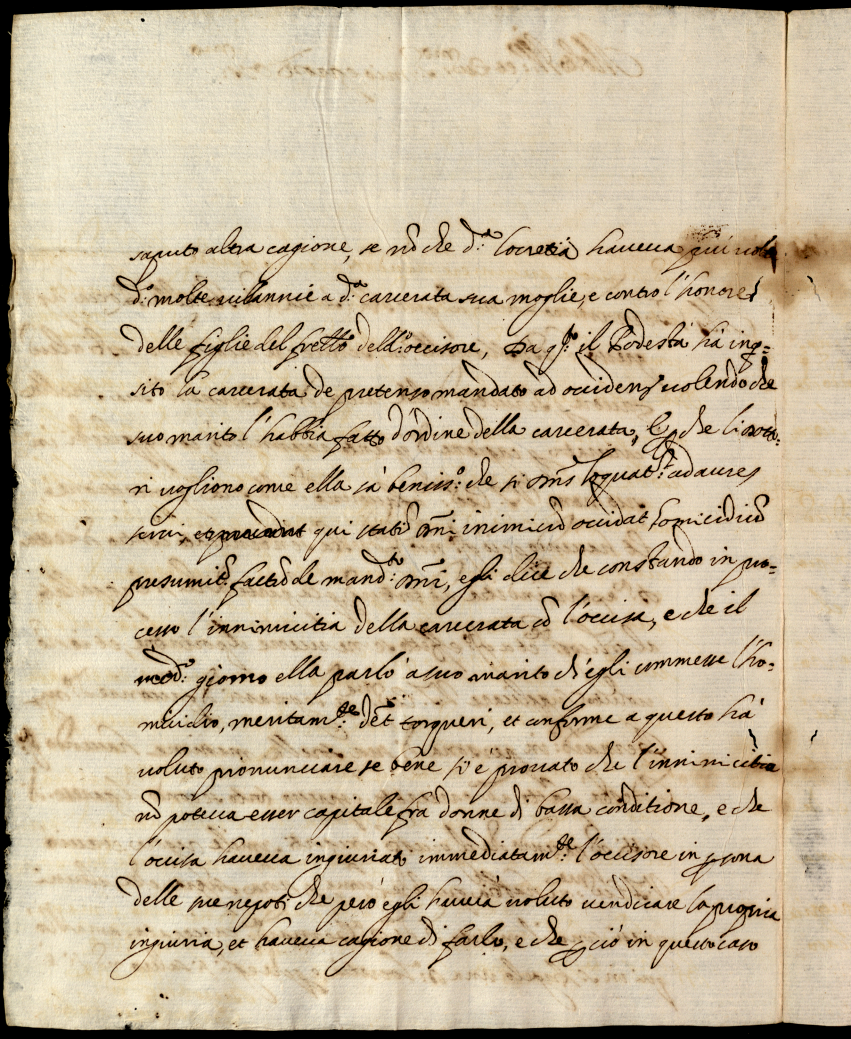 saputo altra cagione, se nõ che d.ª Locretia haveva più volte
d.º molte villannie a d.ª carcerata sua moglie, e contro l'honore
delle figlie del frello dell'occisore, Da q.to il Podestà ha inq=
sito la carcerata de pretenso mandato ad occidend volendo che
suo marito l'habbia fatto d'ordine della carcerata, che li Dotto=
ri vogliono come ella sà beniss.º che si Dñs loquat.r ad aures
servi, et qui statĩ Dñi inimicũ occidat homicidiũ
presumit.r factũ de mand.to Dñi, egli dice che constando in pro=
cesso l'innimicitia della carcerata cõ l'occisa, e che il
med.º giorno ella parlò a suo marito ch'egli commesse l'ho=
micidio, meritam.te dèt torqueri, et conforme a questo hà
voluto pronunciare se bene si è provato che l'innimicitia
nõ poteva esser capitale fra donne di bassa conditione, e che
l'occisa haveva ingiuriato immediatam.te l'occisore in psona
delle sue nepoti che però egli havrà voluto vendicare la propria
ingiuria, et haveva cagione di farlo, e che p ciò in questo caso